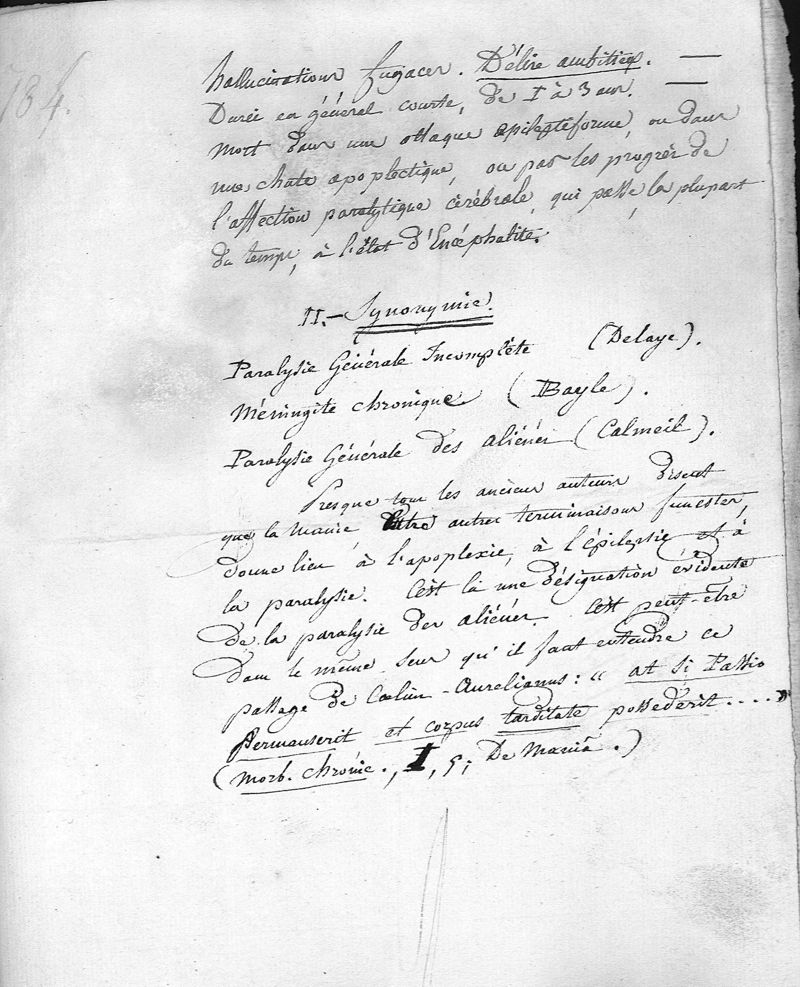 784.
hallucinations fugaces. Délire ambitieux. —
Durée en général courte, de 1 à 3 ans. —
Mort dans une attaque épileptiforme, ou dans
une chute apoplectique, ou par les progrès de
l'affection paralytique cérébrale, qui passe la plupart
du temps, à l'état d'Encéphalite.
II. — Synonymie.
Paralysie Générale Incomplète (Delaye).
Méningite chronique (Bayle).
Paralysie Générale des aliénés (Calmeil).
Presque tous les anciens auteurs disent
que la Manie, Entre autres terminaisons funestes,
donne lieu à l'apoplexie, à l'épilepsie et à
la paralysie. C'est là une désignation évidente
de la paralysie des aliénés. C'est peut-être
dans le même sens qu'il faut entendre ce
passage de Coelius-Aurelianus : « at si Passio
permanserit et corpus tarditate possederit .... »
(Morb. chronic., I, 5; De Maniâ.)